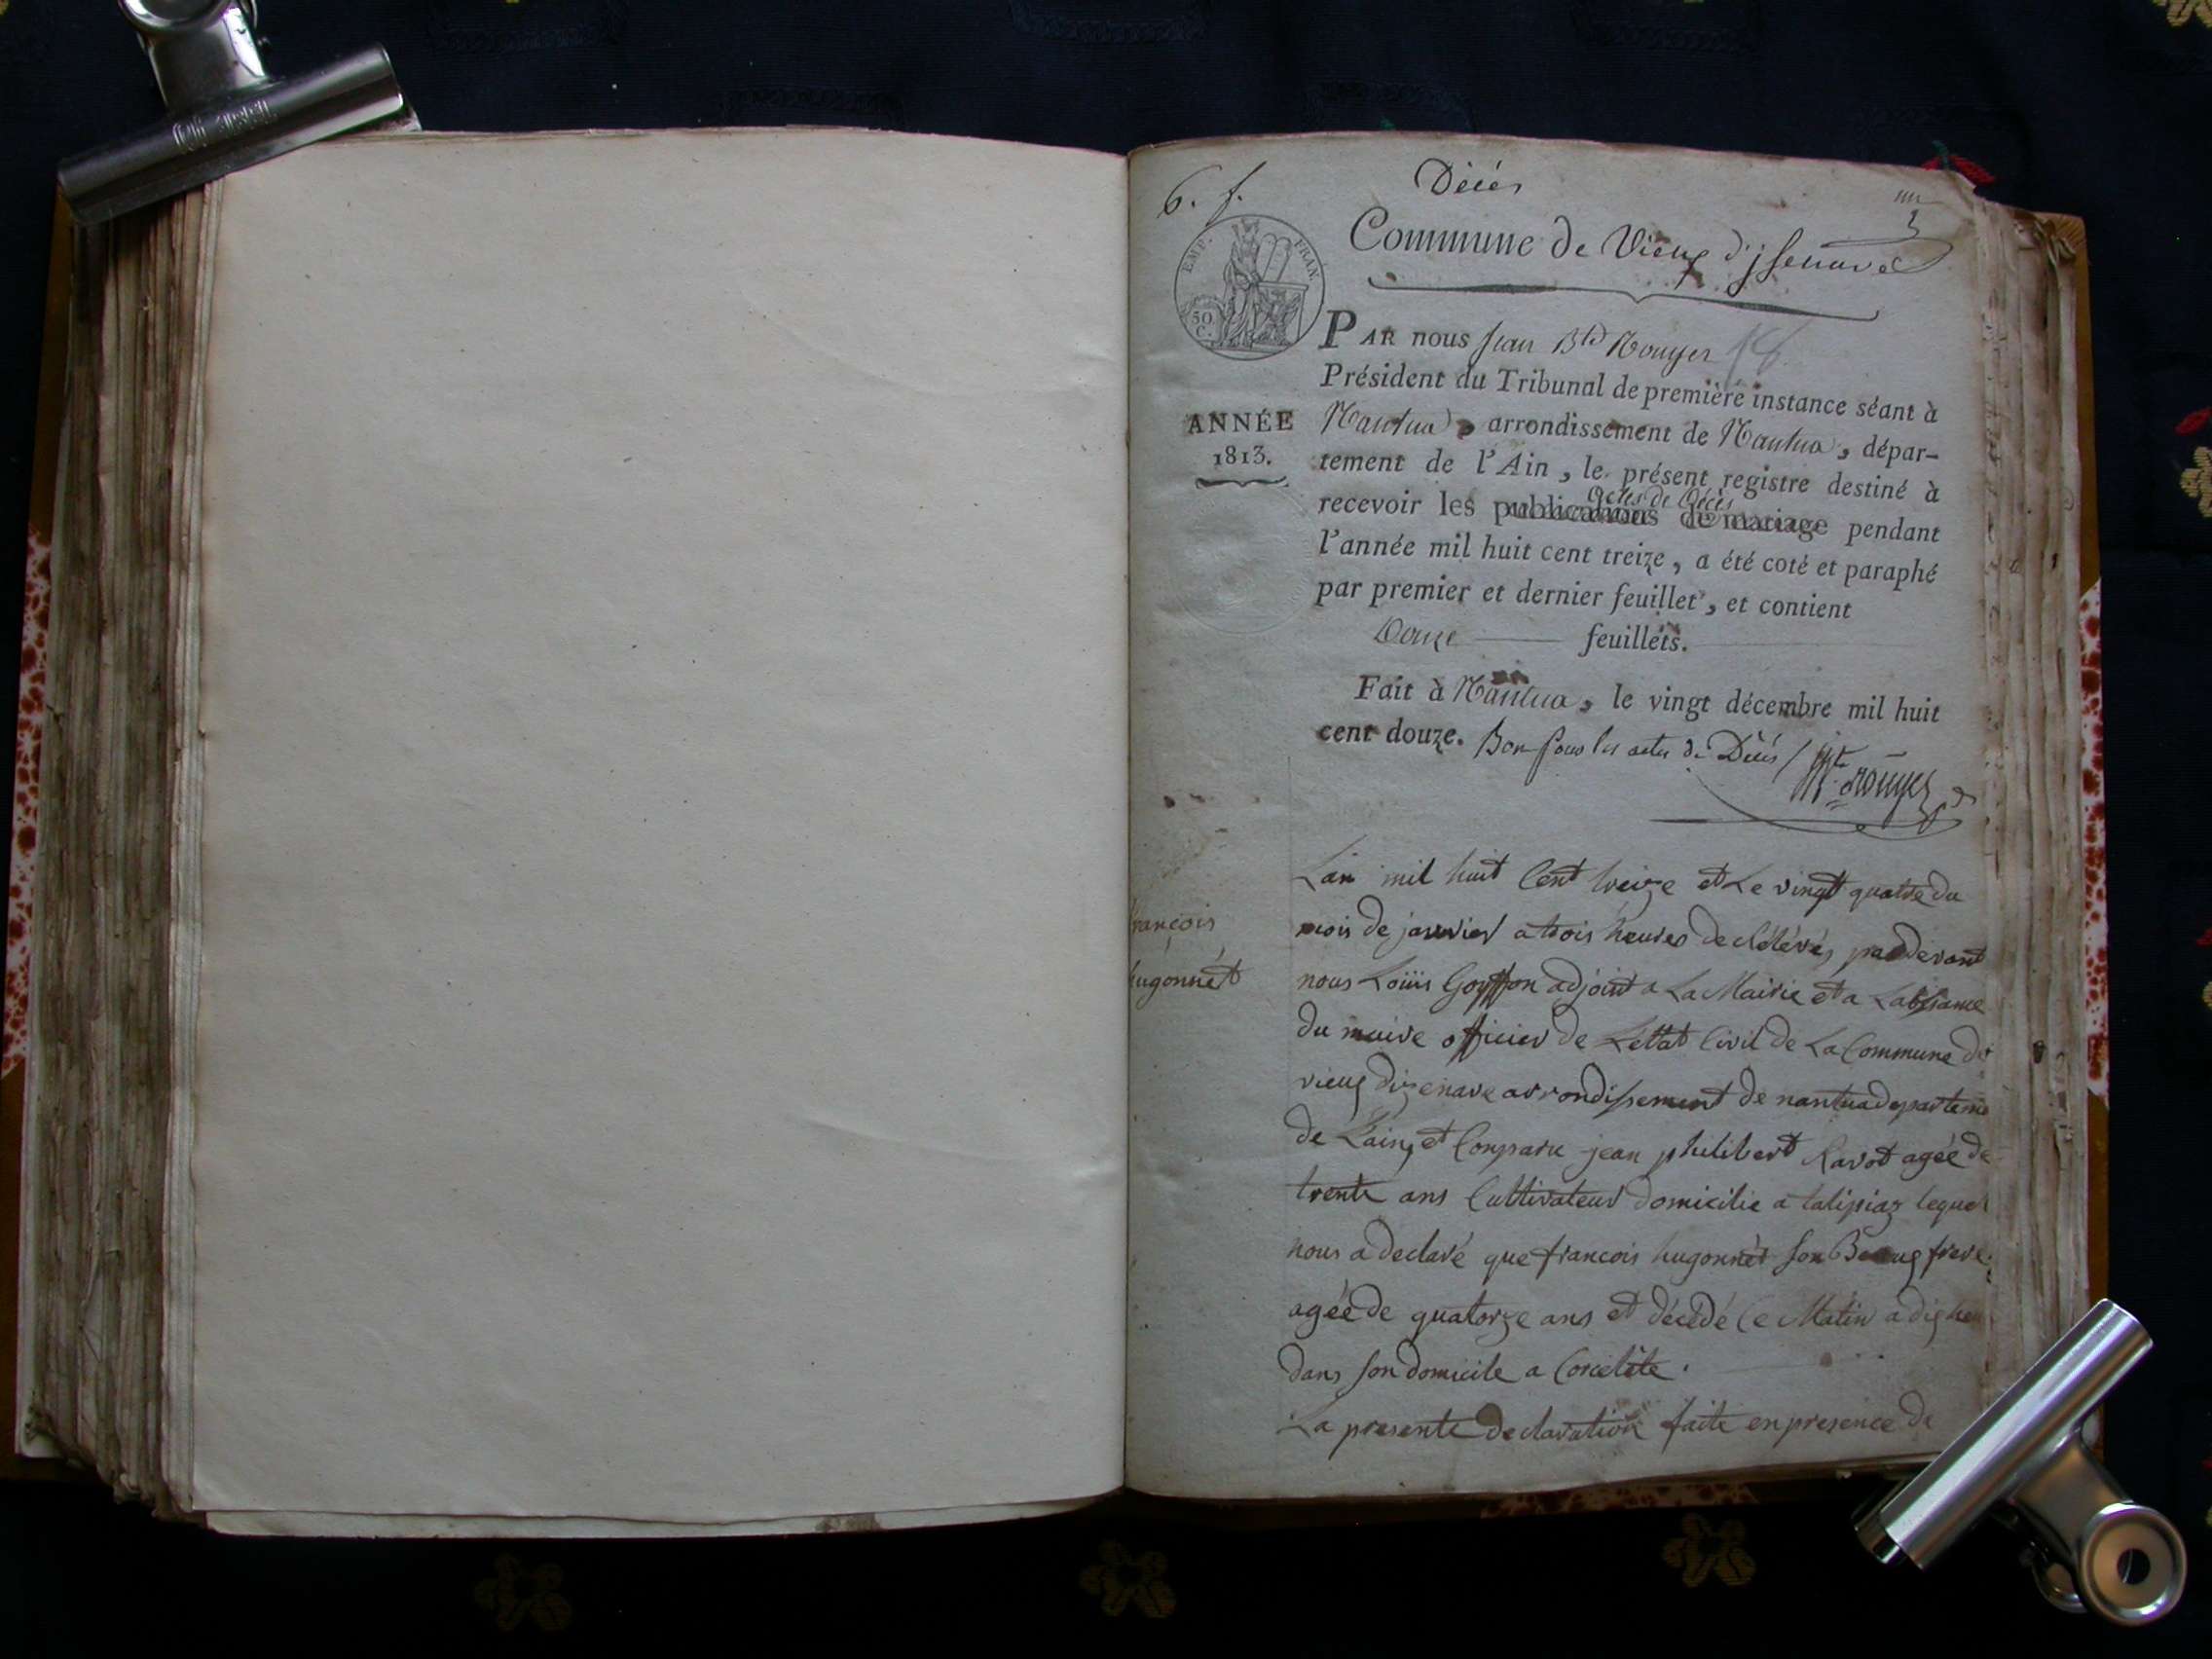 6. f.
Décés
1
Commune de Vieux d'jsenave
EMP. FRAN.
50
C.
PAR nous Jean Bte Rouyer 18
Président du Tribunal de première instance séant à
ANNÉE
1813.
Nantua, arrondissement de Nantua, dépar-
tement de l'Ain, le présent registre destiné à
actes de Décès
recevoir les publications de mariage pendant
l'année mil huit cent treize, a été coté et paraphé
par premier et dernier feuillet, et contient
Douze feuillets.
Fait à Nantua, le vingt décembre mil huit
cent douze. Bon pour les actes de Décés / Bte Rouyer
François
hugonnet
L'an mil huit Cent treize et Le vingt quatre du
mois de janvier a trois heures de Rélévés, pardevant
nous Loüis Goyffon adjoint a La Mairie et a Labsance
du maire officier de Léttat Civil de La Commune de
vieux dizenave arrondissement de nantua departeme
de Lain, et Comparu jean philibert Ravot agée de
trente ans Cultivateur domicilie a talipiaz lequel
nous a declaré que francois hugonnet son Beaux frere
agée de quatorze ans et décédé Ce Matin a dix heu
dans son domicile a Corcelete.
La presente declaration faite en presence de